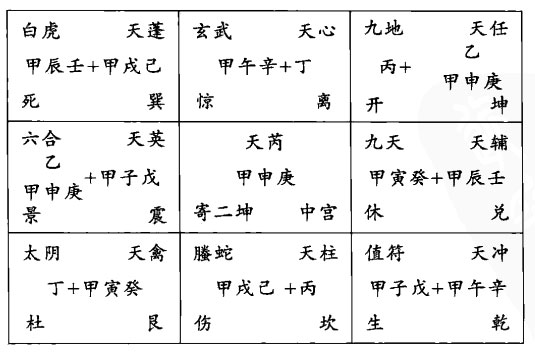 白虎 天蓬
甲辰壬+甲戌己
死 巽
玄武 天心
甲午辛+丁
惊 离
九地 天任
乙
丙+ 甲申庚
开 坤
六合 天英
乙
甲申庚 +甲子戊
景 震
天芮
甲申庚
寄二坤 中宫
九天 天辅
甲寅癸+甲辰壬
休 兑
太阴 天禽
丁+甲寅癸
杜 艮
螣蛇 天柱
甲戌己 +丙
伤 坎
值符 天冲
甲子戊+甲午辛
生 乾